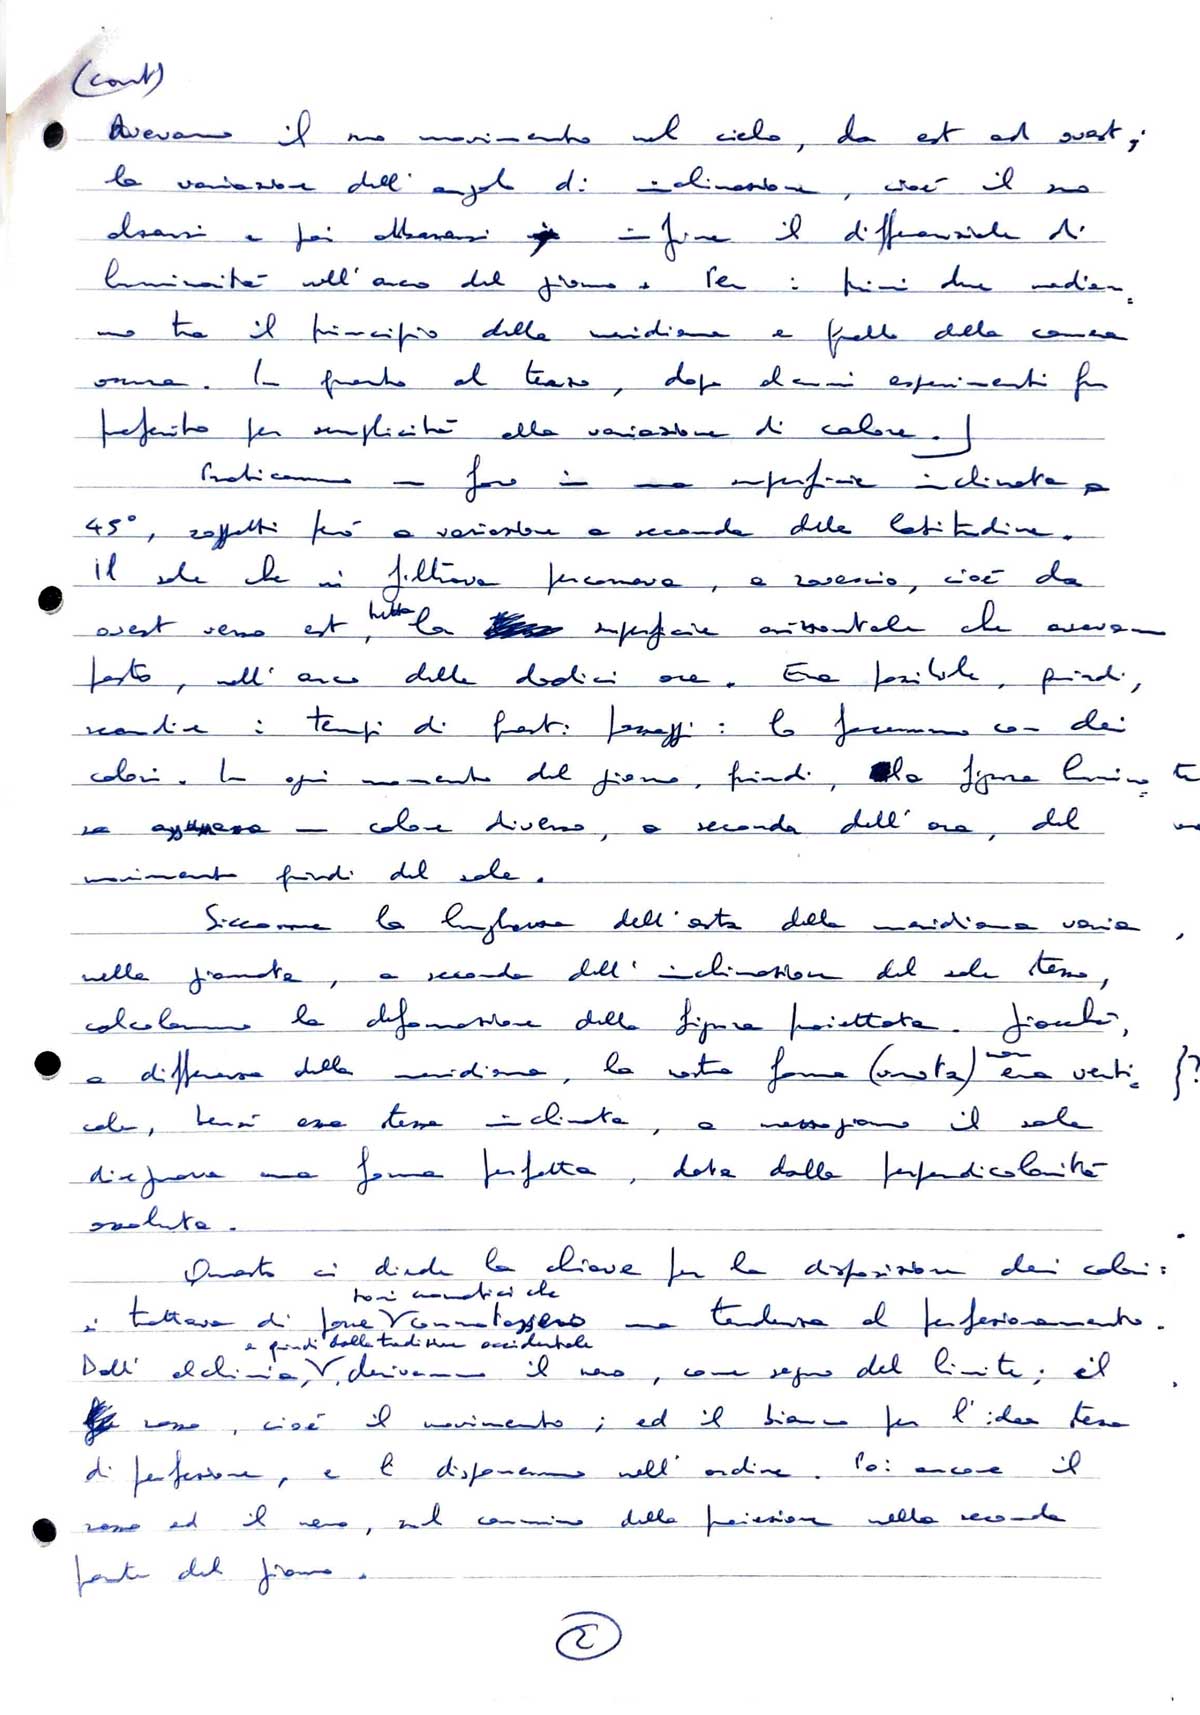 (cont)
Avevamo il suo movimento nel cielo, da est ad ovest;
la variazione dell'angolo di inclinazione, cioè il suo
alzarsi e poi abbassarsi infine il differenziale di
luminosità nell'arco del giorno. Per i primi due media=
mo tra il principio della meridiana e quello della camera
oscura. In quanto al terzo, dopo alcuni esperimenti fu
preferito per semplicità alla variazione di calore.]
Praticammo un foro in una superficie inclinata a
45°, soggetti però a variazione a seconda della latitudine.
Il sole che vi filtrava percorreva, a rovescio, cioè da
ovest verso est, tutta la superficie orizzontale che avevamo
posto, nell'arco delle dodici ore. Era possibile, quindi,
scandire i tempi di questi passaggi: lo facemmo con dei
colori. In ogni momento del giorno, quindi, la figura lumino=
sa assumeva un colore diverso, a seconda dell'ora, del
movimento quindi del sole.
Siccome la lunghezza dell'asta della meridiana varia
nella giornata, a seconda dell'inclinazione del sole stesso,
calcolammo la deformazione della figura proiettata. Giacché,
a differenza della meridiana, la nostra forma (vuota) non era verti= }?
cale, bensì essa stessa inclinata, a mezzogiorno il sole
disegnava una forma perfetta, data dalla perpendicolarità
assoluta.
Questo ci diede la chiave per la disposizione dei colori:
toni cromatici che
si trattava di porre V connotassero una tendenza al perfezionamento.
e quindi dalla tradizione occidentale
Dall'alchimia, V, derivammo il nero, come segno del limite; il
rosso, cioè il movimento; ed il bianco per l'idea stessa
di perfezione, e li disponemmo nell'ordine. Poi ancora il
rosso ed il nero, sul cammino della proiezione nella seconda
parte del giorno.
2